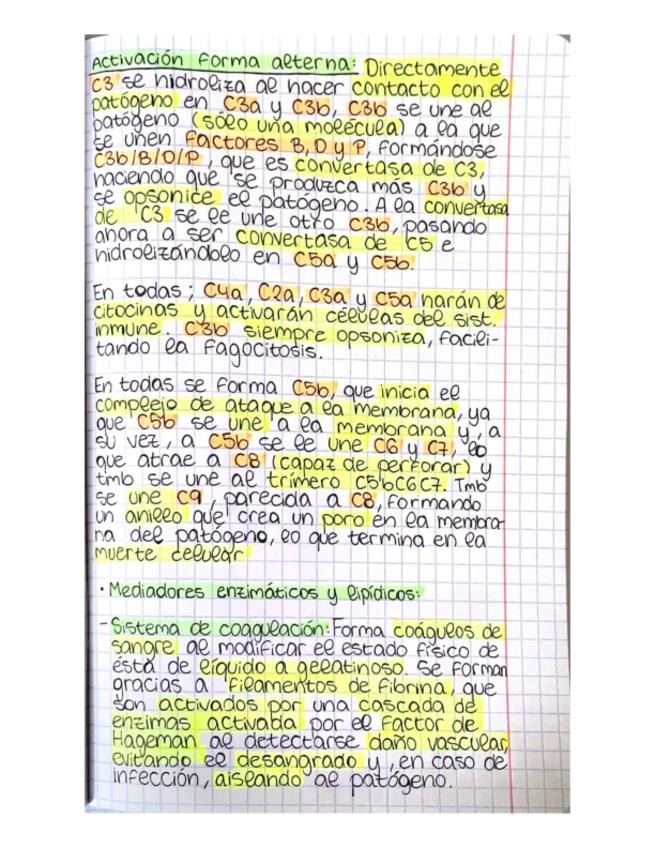 Activación forma alterna: Directamente
C3 se hidroliza al hacer contacto con el
patógeno en C3a y C3b, C3b se une al
patógeno (sólo una molécula) a la que
se unen factores B, D y P, formándose
C3b/B/D/P, que es convertasa de C3,
haciendo que se produzca más C3b y
se opsonice el patógeno. A la convertasa
de C3 se le une otro C3b, pasando
ahora a ser convertasa de C5 e
hidrolizándolo en C5a y C5b.
En todas; C4a, C2a, C3a y C5a harán de
citocinas y activarán células del sist.
inmune. C3b siempre opsoniza, facili-
tando la fagocitosis.
En todas se forma C5b, que inicia el
complejo de ataque a la membrana, ya
que C5b se une a la membrana y, a
su vez, a C5b se le une C6 y C7, lo
que atrae a C8 (capaz de perforar) y
tmb se une al trímero C5bC6C7. Tmb
se une C9, parecida a C8, formando
un anillo que crea un poro en la membra-
na del patógeno, lo que termina en la
muerte celular
· Mediadores enzimáticos y lipídicos:
- Sistema de coagulación: Forma coágulos de
sangre al modificar el estado físico de
ésta de líquido a gelatinoso. Se forman
gracias a filamentos de fibrina, que
son activados por una cascada de
enzimas activada por el Factor de
Hageman al detectarse daño vascular,
evitando el desangrado y, en caso de
infección, aislando al patógeno.